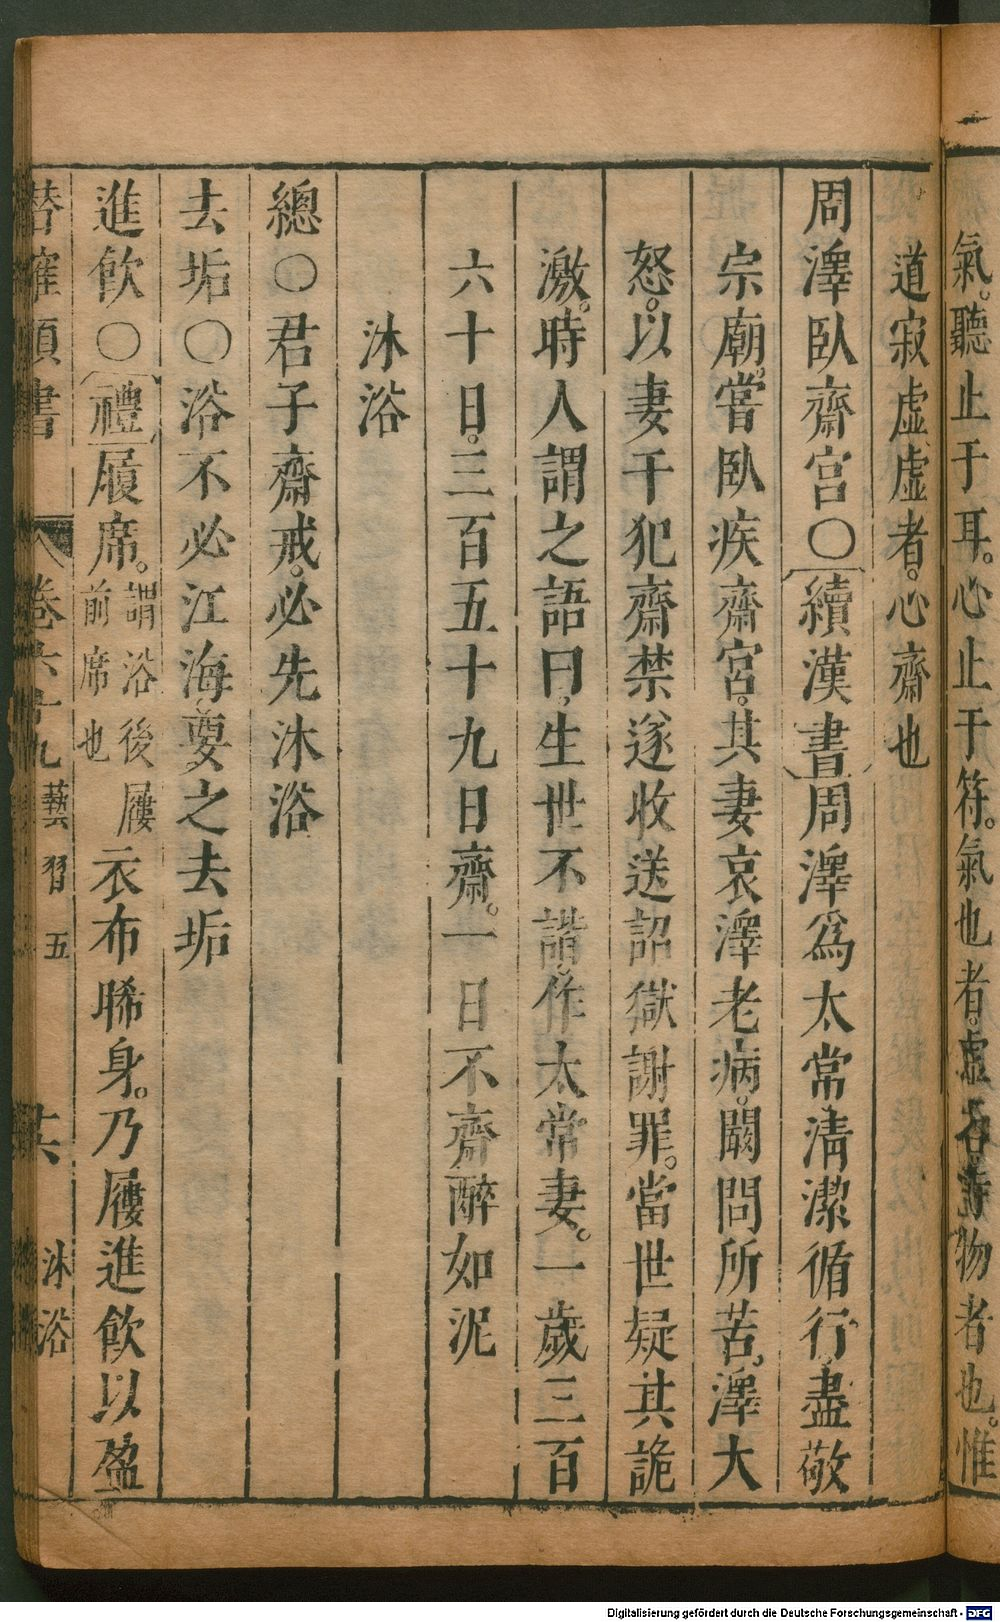 氣。聽止于耳。心止于符。氣也者。虛而待物者也。惟
道寂虛虛者。心齋也
周澤臥齋宮〇續漢書周澤爲太常清潔循行盡敬
宗廟。嘗臥疾齋宮。其妻哀澤老病。闚問所苦。澤大
怒。以妻干犯齋禁遂收送詔獄謝罪。當世疑其詭
激。時人謂之語曰生世不諧。作太常妻。一歲三百
六十日。三百五十九日齋。一日不齋醉如泥
沐浴
總〇君子齋戒。必先沐浴
去垢〇浴不必江海要之去垢
進飲〇禮履席。謂浴後屨前席也衣布晞身。乃屨進飲以盈
潛確類書 卷六十九 藝習五 沐浴
Digitalisierung gefördert durch die Deutsche Forschungsgemeinschaft - DFG